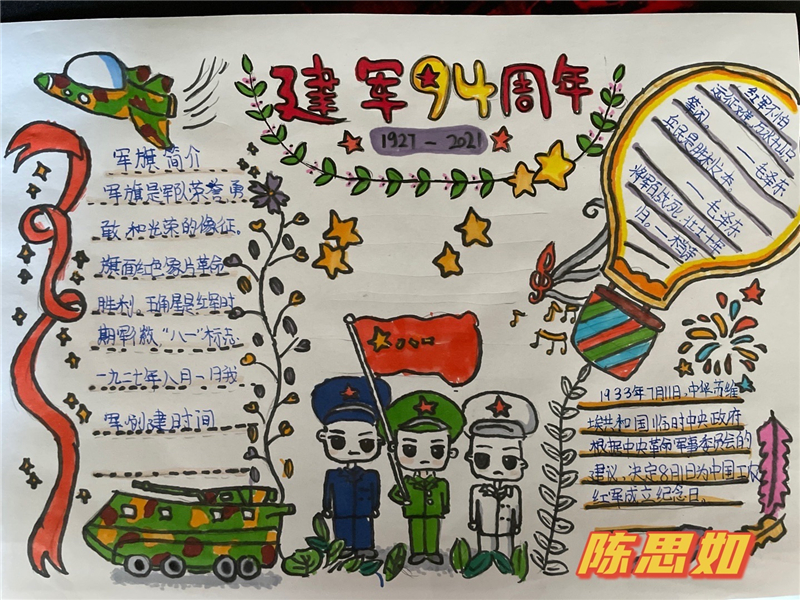 建军94周年
1927-2021
军旗简介
军旗是军队荣誉勇
敢和光荣的像征。
旗面红色象片革命
胜利,五角星是红军时
期军徽,"八一"标志
一九二七年八月一日我
军创建时间
红军不怕
远征难,万水千山只
等闲。
——毛泽东
兵民是胜利之本。
——毛泽东
将军百战死,壮士十年
归。——木兰诗
1933年7月11日,中华苏维
埃共和国临时中央政府
根据中央革命军事委员会的
建议,决定8月1日为中国工农
红军成立纪念日。
陈思如